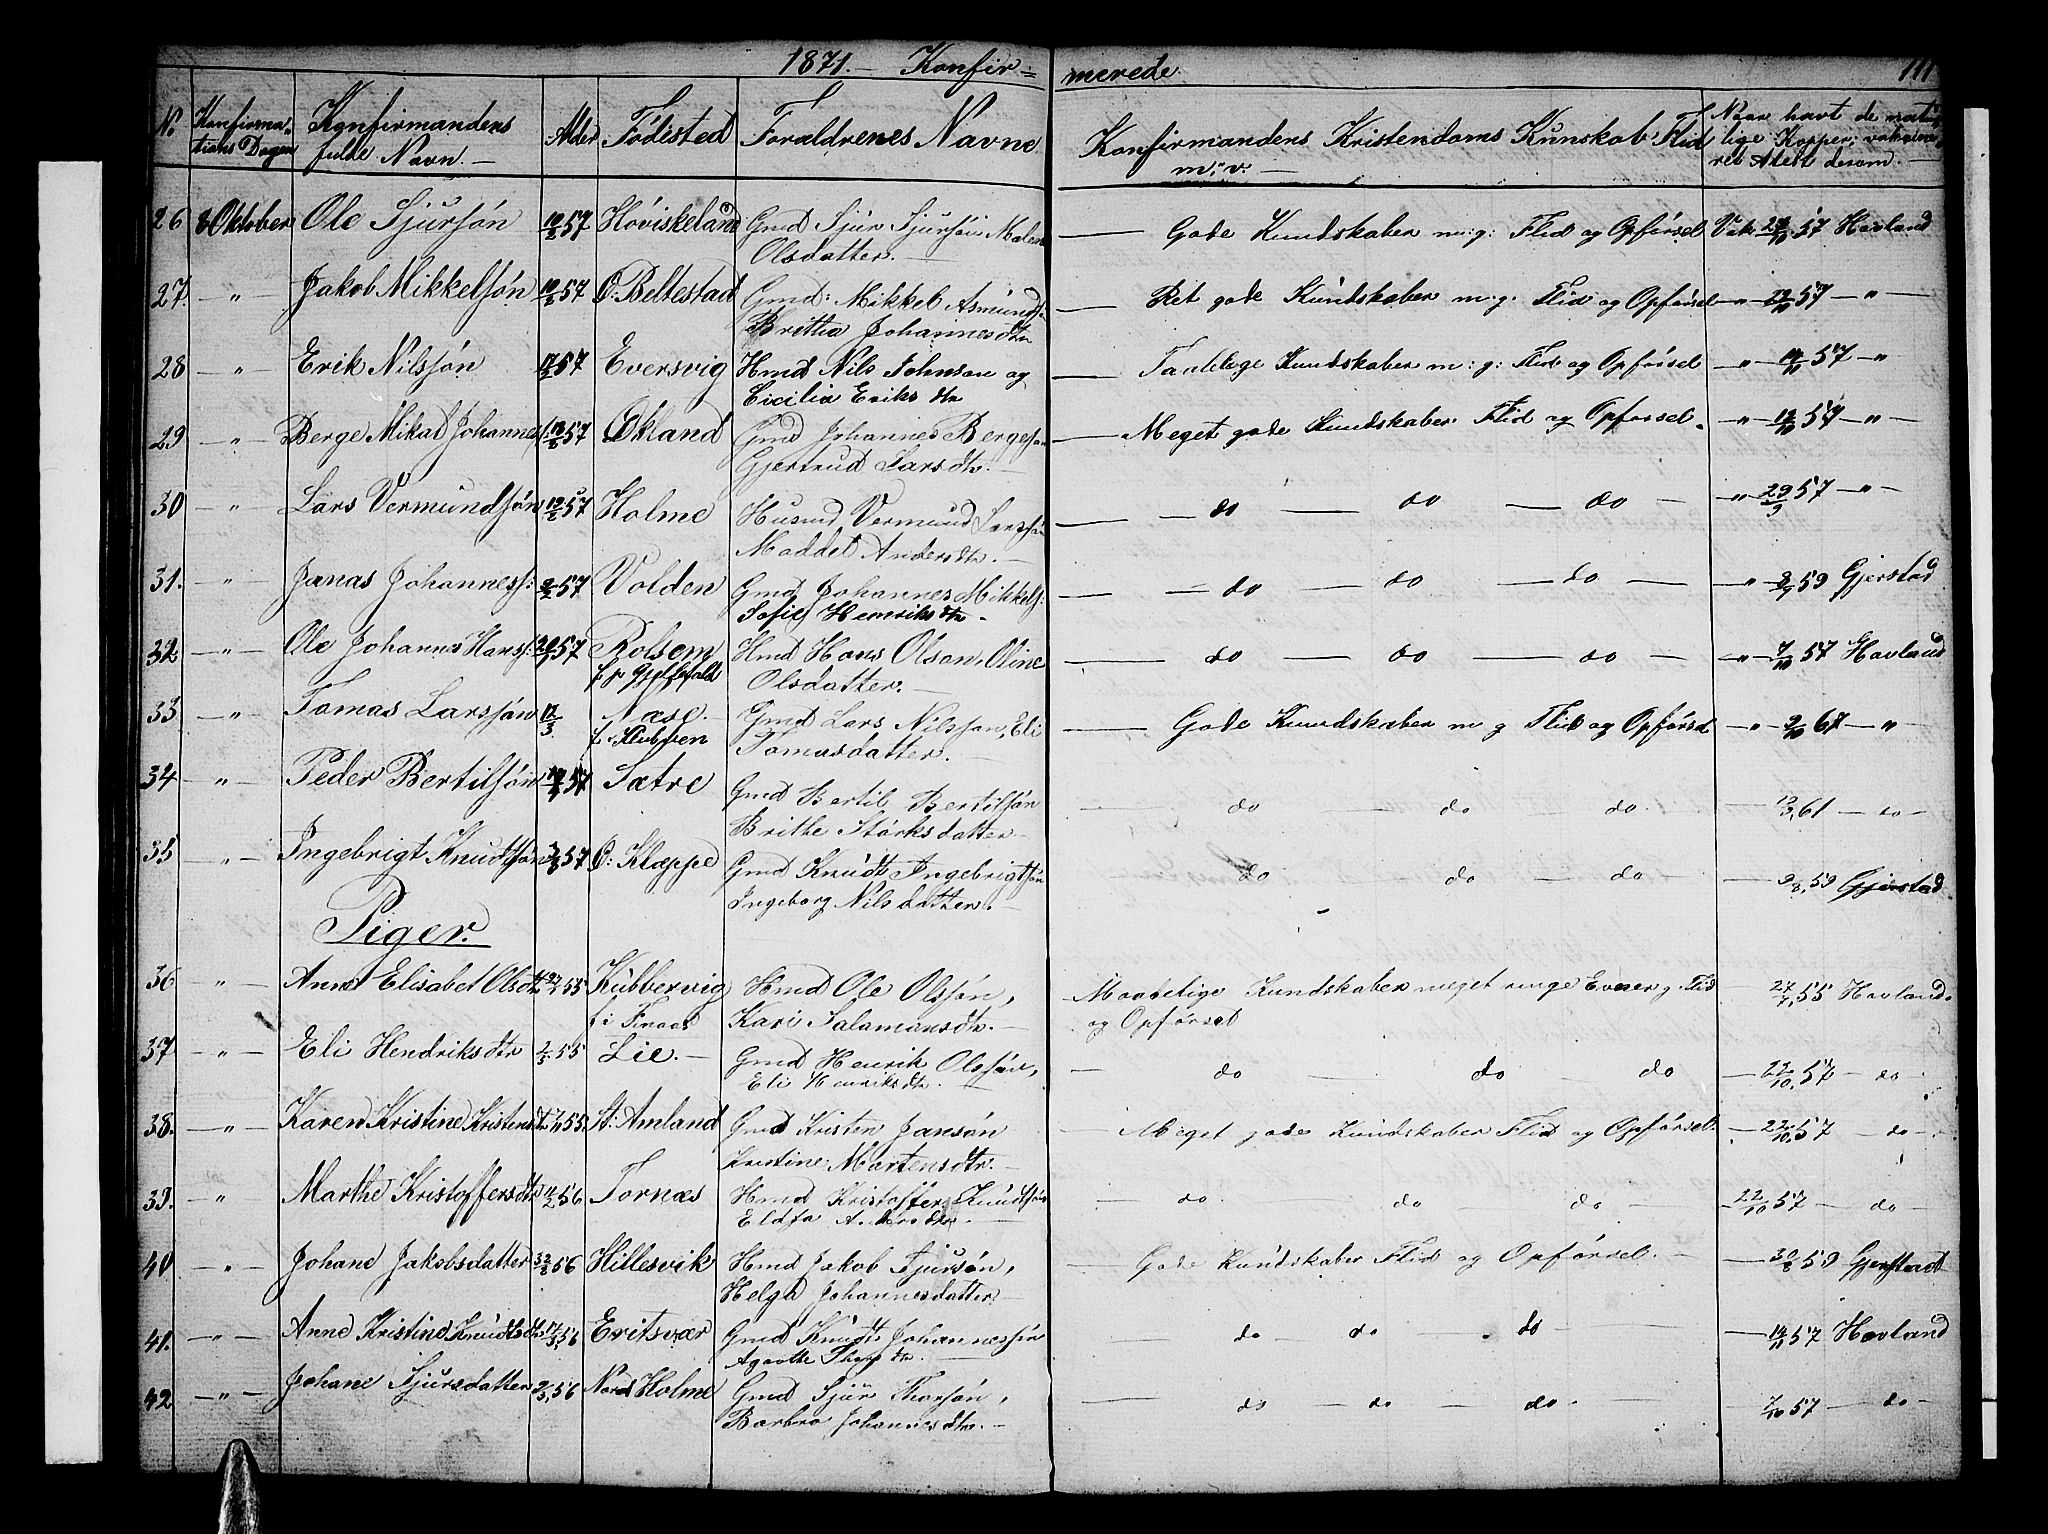 1871. – Konfir=
merede. 111
No Konfirma-
tions Dagen Konfirmandens
fulde Navn. – Alder Födisted Forældrenes Navne Konfirmandens Kristendoms Kunskab Flid
m: v. – Naar havt de natur
lige Kopper; vaksine
ret Atest desom. –
26 8 Oktober Ole Sjursön 57 Höviskeland Gmd Sjur Sjursön Malen
Olsdatter. – Gode Kundskaber m: g: Flid og Opförsel Vak 57 Havland
27. – " – Jakob Mikkelsön 57 Ö. Beltestad Gmd: Mikkel Asmunds
Britha Johannesdtr – Ret gode Kundskaber m: g: Flid og Opförsel – " – 57 – " –
28 – " – Erik Nilsön 57 Eversvig Hmd Nils Johnson og
Cicilia Eriks dtr – Taalelige Kundskaber m: g: Flid og Opförsel – " – 57 – "
29 – " – Berge Mikal Johannes 57 Økland Gmd Johannes Bergeson
Gjertrud Larsdtr. – Meget gode Kundskaber Flid og Opförsel – " – 57 – "
30 – " – Lars Vermundsön 57 Holme Husmd Vermund Larssön
Maddel Andersdtr. – do – do – do – " – 29/9 57 – " –
31. – " – Jonas Johanness: 57 Volden Gmd Johannes Mikkels:
Sofie Henriks dtr. – do – do – do – " – 59 Gjerstad
32 – " – Ole Johannes Hanss: 57 Rolsem
Hmd Hans Olson, Oline
Olsdatter. – do – do – do – " – 7/10 57 Havland
33 – " – Tomas Larssön 12/3 Næse.
Gmd Lars Nilsson, Eli
Tomasdatter. – Gode Kundskaber m g Flid og Opförsel – " – 67 – "
34 – " – Peder Bertilsön 57 Sætre Gmd Bertil Bertilsön
Brithe Störksdatter – do – do – do. – 61 – do –
35 – " – Ingebrigt Knudtsön 57 Ö: Klæppe Gmd Knudt Ingebrigtsön
Ingeborg Nilsdatter. – do – do – do – 9/8 59 Gjerstad
Piger.
36 – " – Anne Elisabet Olsdtr 55 Kubbervig
f i Finaas Hmd Ole Olssön,
Kari Salamansdtr. – Maadelige Kundskaber meget ringe Evner g. Flid
og Opförsel – 27/7 55 Havland.
37 – " – Eli Hendriks dtr 55 Lie. – Gmd Henrik Olssön,
Eli Henriksdtr. – do – do do – 22/10 57 – do –
38. – " – Karen Kristine Kristensdtr 55. St. Amland Gmd Kristen Jansön
Kristine Martensdtr. – Meget gode Kundskaber Flid og Opförsel. – 22/10 57 – do –
39. – " – Marthe Kristoffersdtr 56 Tornæs Hmd Kristoffer Knudtsön
Andersdtr – – do. do – do – 22/10 57 – do
40 – " – Johane Jakobsdatter 56 Hillesvik Hmd Jakob Sjursön,
Helga Johannesdatter – Gode Kundskaber Flid og Opförsel. – 30/8 59 Gjerstad
41. – " – Anne Kristine Knudtsdtr 56 Eritsvær Gmd Knudt Johannessön
Agaothe dtr. – do – do – do – 57 Havland
42 – " – Johane Sjursdatter 56 Nord Holme Gmd Sjur Thorsön,
Barbro Johannesdtr. – do – do – do. – 7/10 57 – do –